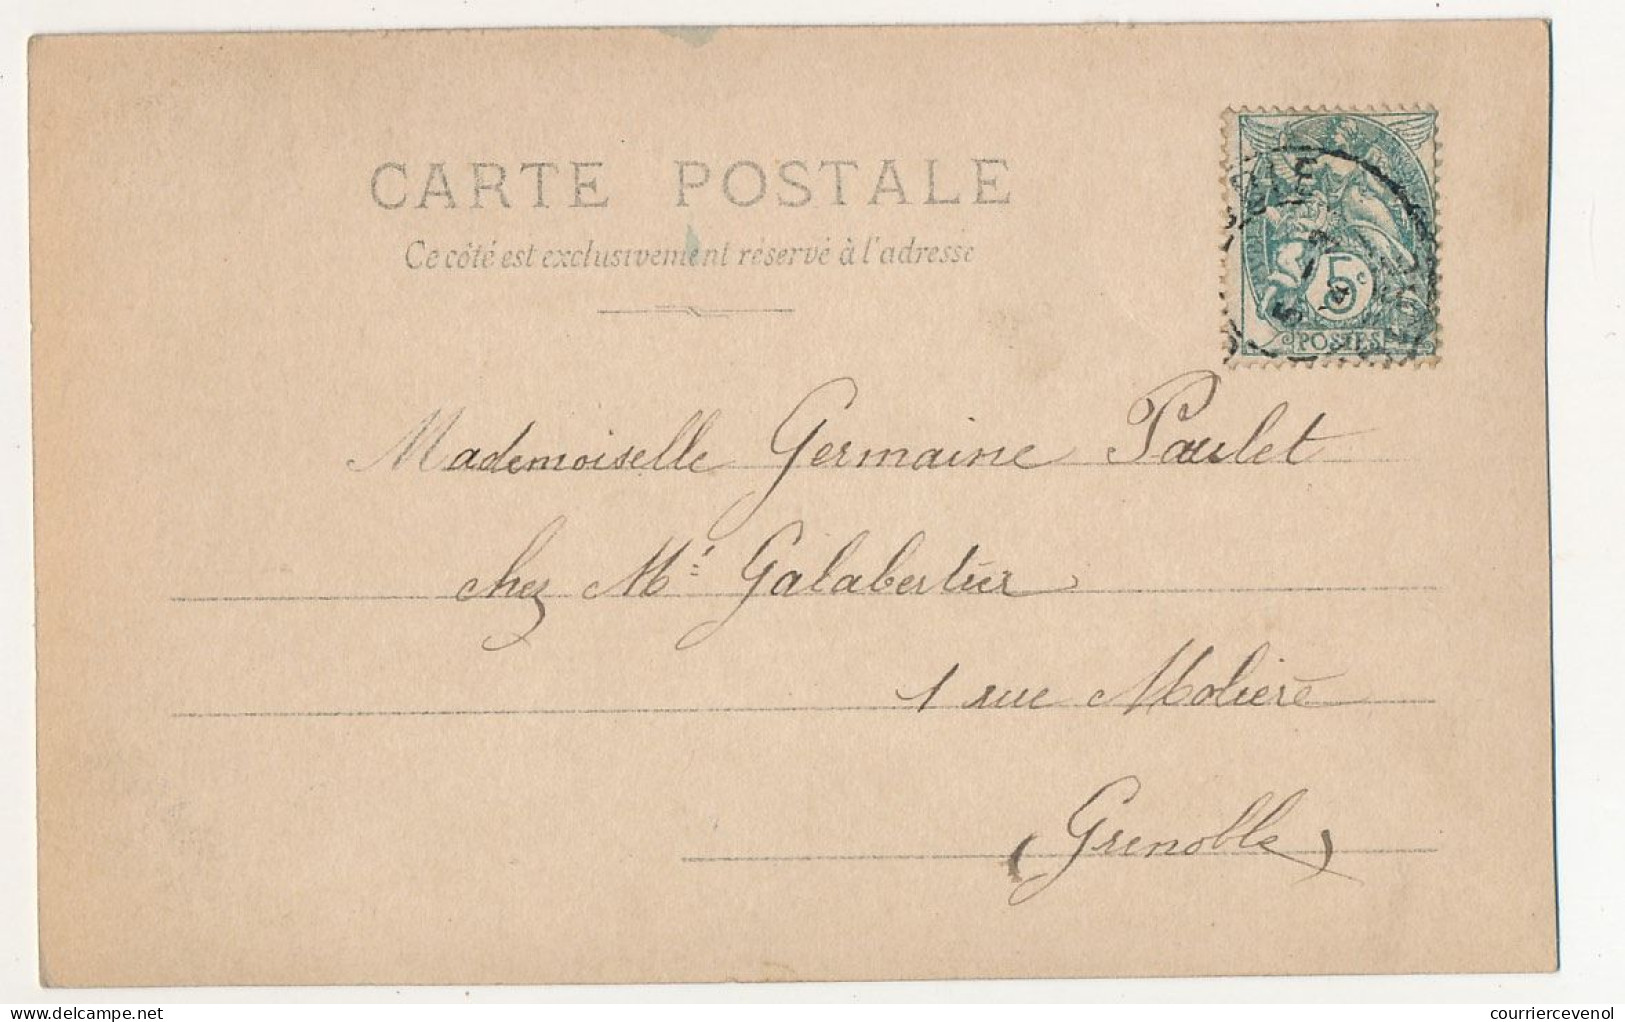 CARTE POSTALE
Ce côté est exclusivement réservé à l'adresse
5c
POSTES
Mademoiselle Germaine Paulet
chez Mr Galabertier
1 rue Molière
(Grenoble)
delcampe.net
courriercevenol